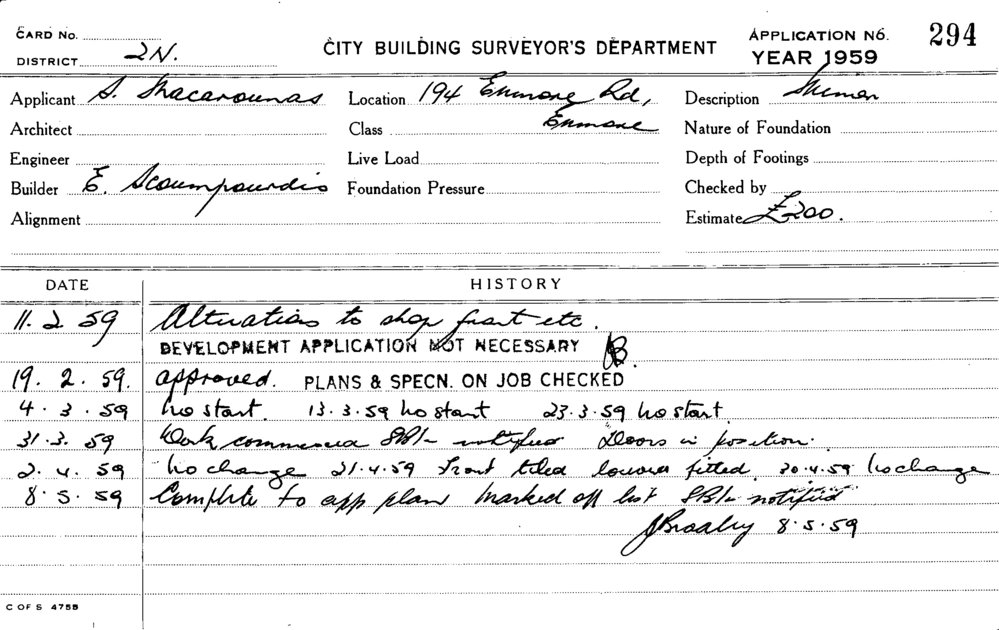 CARD No.
DISTRICT 2N.
CITY BUILDING SURVEYOR'S DEPARTMENT
APPLICATION No. 294
YEAR 1959
Applicant S. Location 194 Enmore Rd, Description
Architect Class Enmore Nature of Foundation
Engineer Live Load Depth of Footings
Builder E. Scoumpourdis Foundation Pressure Checked by
Alignment Estimate £200.
DATE HISTORY
11. 2 59 Alterations to shop front etc.
DEVELOPMENT APPLICATION NOT NECESSARY
19. 2. 59. approved. PLANS & SPECN. ON JOB CHECKED
4. 3. 59 No start. 13.3.59 No start 23.3.59 No start
31. 3. 59 Work commenced notified Doors in position.
2. 4. 59 No change 21.4.59 Front tiled louvres fitted. 30.4.59 No change
8. 5. 59 Complete to app plan marked off list notified
8.5.59
C OF S 475B